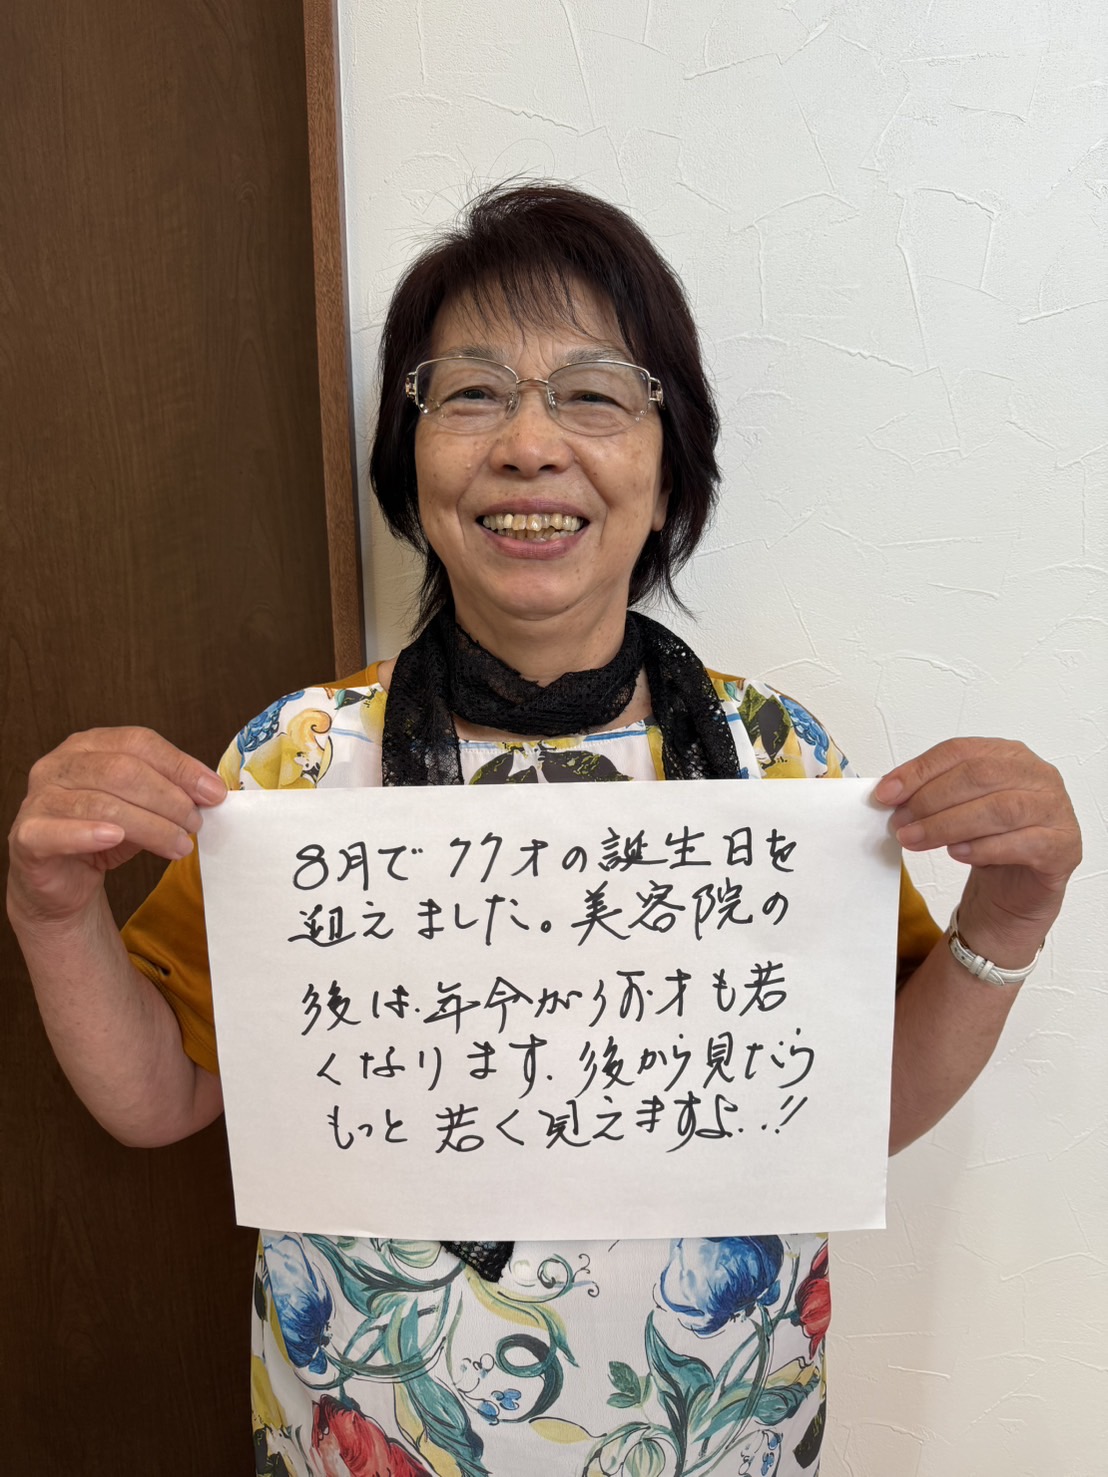 8月で77才の誕生日を
迎えました。美容院の
後は、年令が何才も若
くなります、後から見たら
もっと若く見えますよ..!!